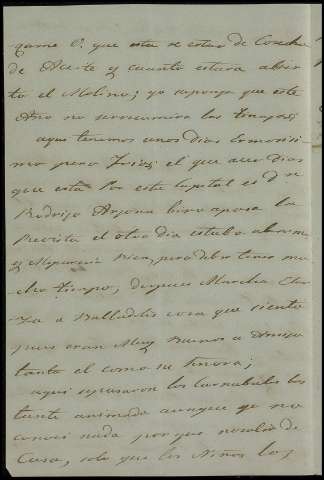 game V. que esta se estaro de Cosecha
de Aceite y cuanto estara abier
to el Molino; yo supongo que este
Año no serviran las Tinajas;
aqui tenemos unos dias Ermosisi
mo pero Frios; el que aceo Dias
que esta Por esta Capital es D. n
Rodrigo Arjona hiro aposa la
Revista el otro dia estubo aberme
y Mepareció Bien, pero debe tener mu
cho tiempo, despues Marcha
a Balladolid cosa que siento
pues eran Muy Buenos a Amigo
tanto el como su Senora;
aqui sepasaron los Carnabales bas
tante animado aunque yo no
conoci nada por que nosalia de
Casa, solo que los Niños los